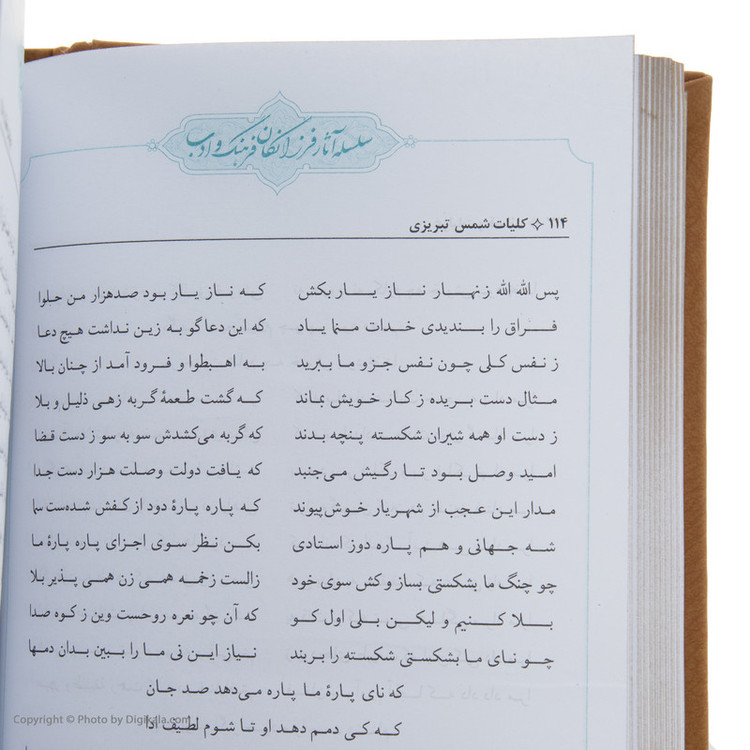 سلسله آثار فرزانگان فرهنگ و ادب
۱۱۴ کلیات شمس تبریزی
پس الله الله زنهار ناز یار بکش که ناز یار بود صدهزار من حلوا
فراق را بندیدی خدات منما یاد که این دعاگو به زین نداشت هیچ دعا
ز نفس کلی چون نفس جزو ما ببرید به اهبطوا و فرود آمد از چنان بالا
مثال دست بریده ز کار خویش بماند که گشت طعمهٔ گربه زهی ذلیل و بلا
ز دست او همه شیران شکسته پنجه بدند که گربه می‌کشدش سو به سو ز دست قضا
امید وصل بود تا رگیش می‌جنبد که یافت دولت وصلت هزار دست جدا
مدار این عجب از شهریار خوش‌پیوند که پاره پارهٔ دود از کفش شده‌ست سما
شه جهانی و هم پاره دوز استادی بکن نظر سوی اجزای پاره پارهٔ ما
چو چنگ ما بشکستی بساز و کش سوی خود زالست زخمه همی زن همی پذیر بلا
بلا کنیم و لیکن بلی اول کو که آن چو نعره روحست وین ز کوه صدا
چو نای ما بشکستی شکسته را بربند نیاز این نی ما را ببین بدان دمها
که نای پارهٔ ما پاره می‌دهد صد جان
که کی دمم دهد او تا شوم لطیف ادا
Copyright © Photo by Digikala.com